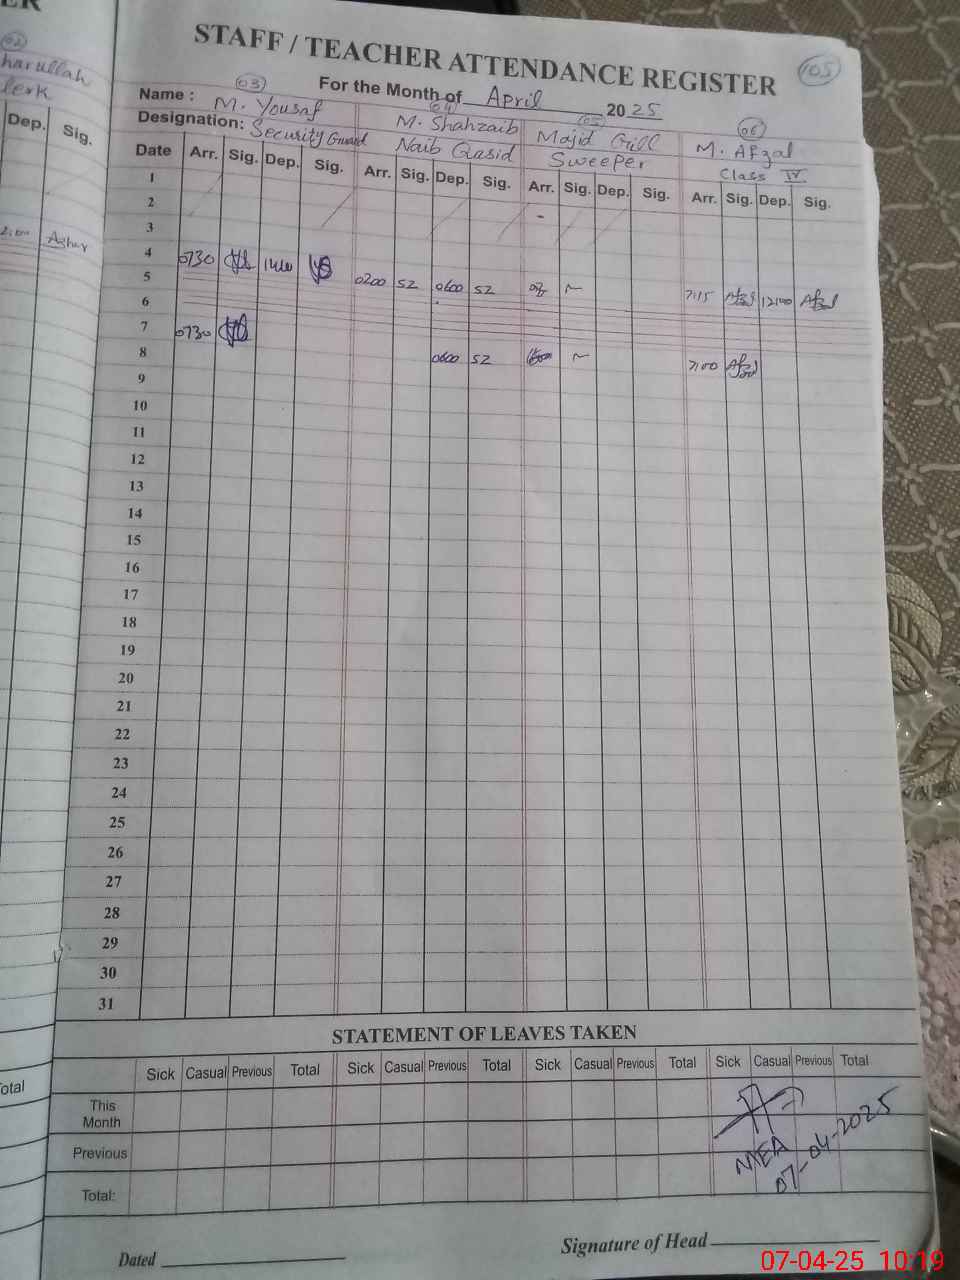 ER
STAFF / TEACHER ATTENDANCE REGISTER
105
For the Month of April 2025
02
harullah
lerk
Dep. Sig.
2:00 Azhar
Name : 03 04 05 06
M. Yousaf M. Shahzaib Majid Gill M. Afzal
Designation: Security Guard Naib Qasid Sweeper Class IV
Date Arr. Sig. Dep. Sig. Arr. Sig. Dep. Sig. Arr. Sig. Dep. Sig. Arr. Sig. Dep. Sig.
1
2
3
4 0730
5 0200 SZ 0600 SZ 7:15 Afzal 12:00 Afzal
6
7 0730
8 0600 SZ 7:00 Afzal
9
10
11
12
13
14
15
16
17
18
19
20
21
22
23
24
25
26
27
28
29
30
31
STATEMENT OF LEAVES TAKEN
Sick Casual Previous Total Sick Casual Previous Total Sick Casual Previous Total Sick Casual Previous Total
This
Month
Previous
Total:
Total
MEA
07-04-2025
Dated
Signature of Head
07-04-25 10:19